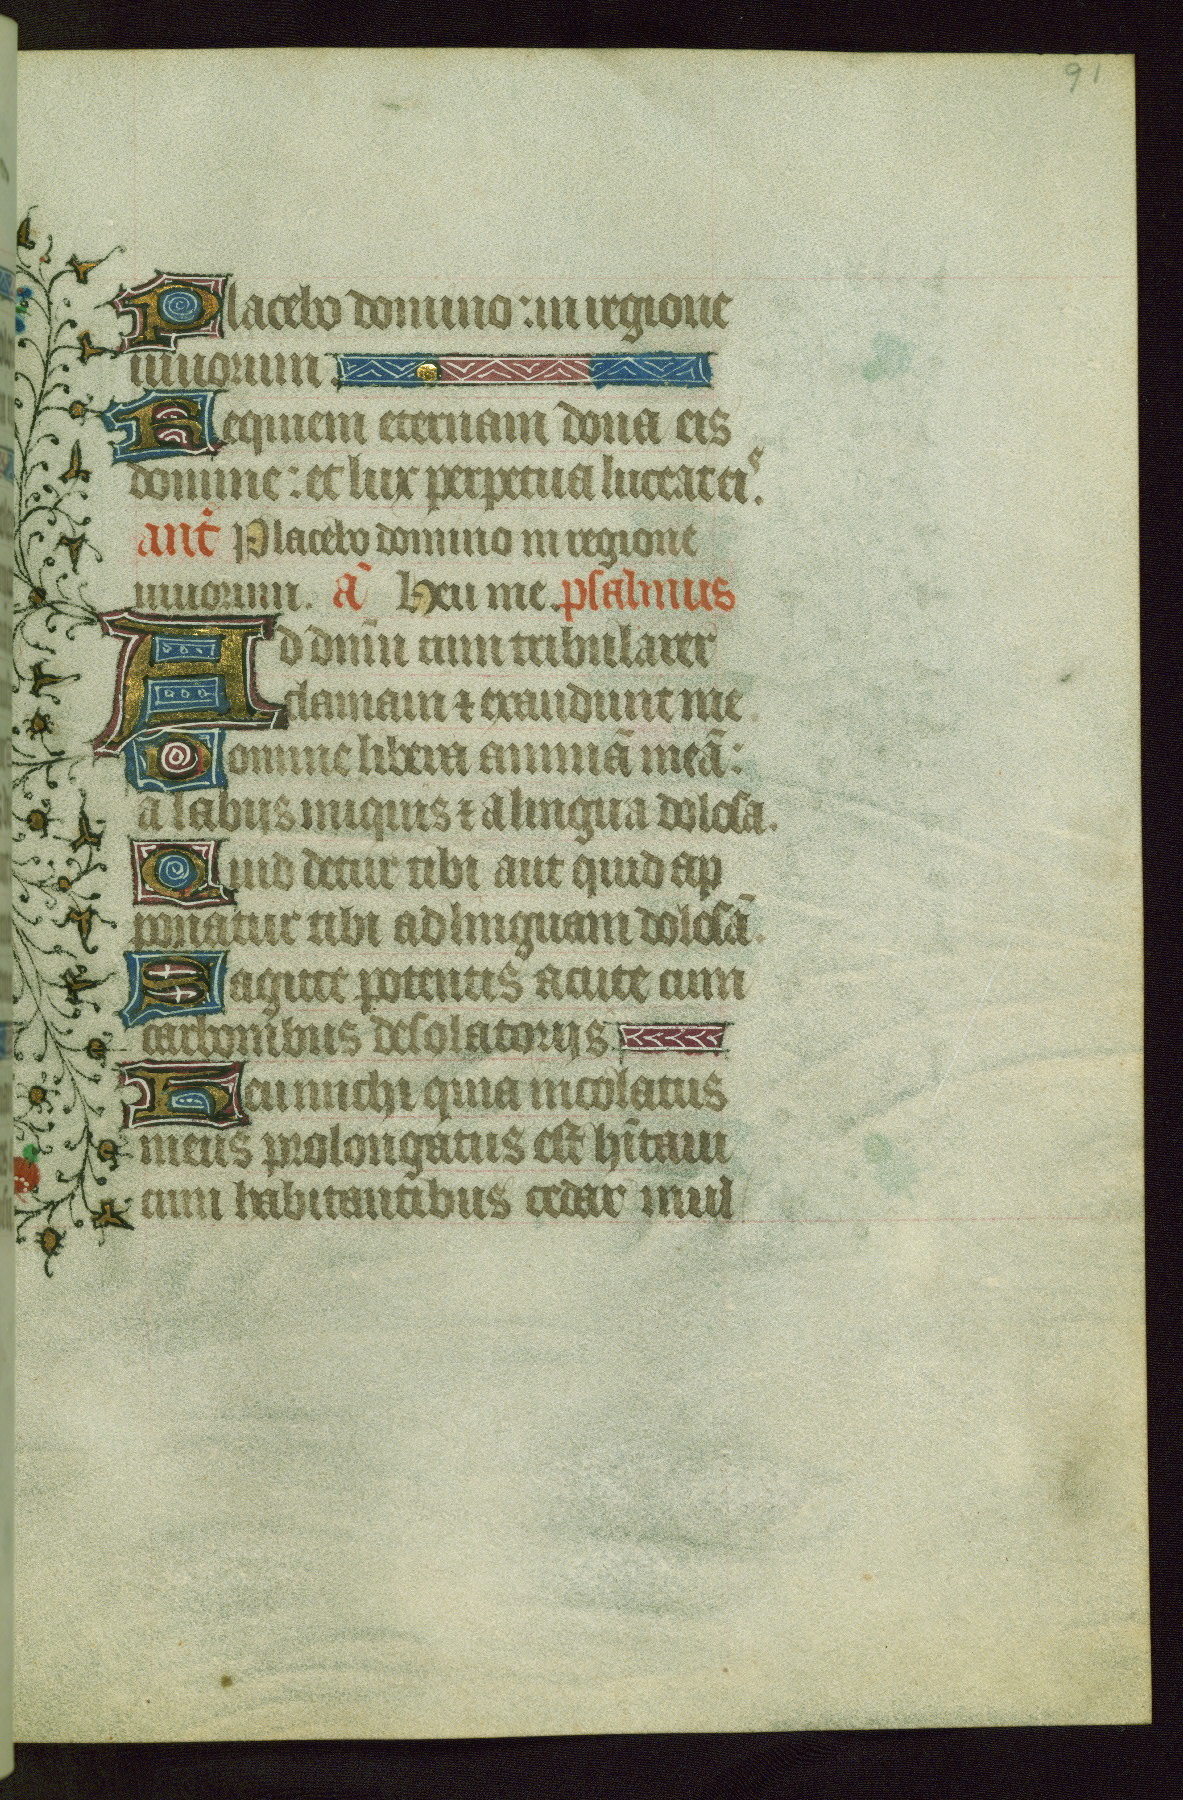 91
Placebo domino : in regione
uiuorum .
Requiem eternam dona eis
domine : et lux perpetua luceat eis.
ant̄ Placebo domino in regione
uiuorum . a᷑ Heu me . psalmus
Ad dn̄m cum tribularer
clamaui ⁊ exaudiuit me .
Domine libera animā meā :
a labijs iniquis ⁊ a lingua dolosa .
Quid detur tibi aut quid ap
ponatur tibi ad linguam dolosā .
Sagitte potentis acute cum
carbonibus desolatorijs
Heu michi quia incolatus
meus prolongatus est hītaui
cum habitantibus cedar mul